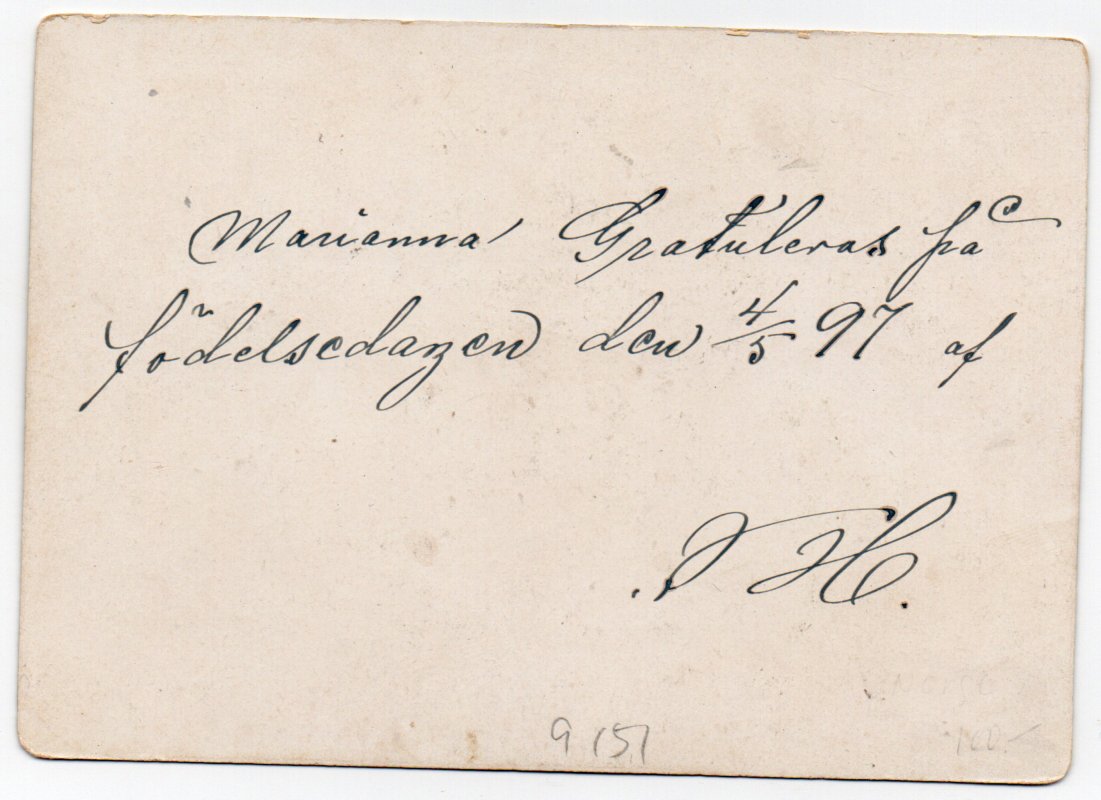 Marianna Gratuleras på
födelsedagen den 4/5 97 af
T H.
9151